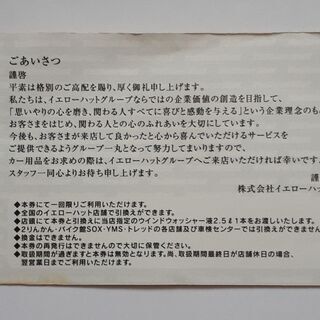 ごあいさつ
謹啓
平素は格別のご高配を賜り、厚く御礼申し上げます。
私たちは、イエローハットグループならではの企業価値の創造を目指して、
「思いやりの心を磨き、関わる人すべてに喜びと感動を与える」という企業理念のも
お客さまをはじめ、関わる人との心のふれあいを大切にしています。
今後も、お客さまが来店して良かったと心から喜んでいただけるサービスを
ご提供できるようグループ一丸となって努力してまいりますので、
カー用品をお求めの際は、イエローハットグループへご来店いただければ幸いです。
スタッフ一同心よりお待ち申し上げております。
謹
株式会社イエローハッ
◆本券にて一回限りご利用になれます。
◆全国のイエローハット店舗で引換えができます。
◆店頭にて本券と引換えに当店指定のウインドウォッシャー液2.5ℓ1本をお渡しいたします。
◆2りんかん・バイク館SOX・YMS・トレッドの各店舗及び車検センターでは引換えができませ
◆換金はできません。
◆本券の再発行はできませんので大切に保管ください。
◆取扱期間が過ぎますと本券は無効となります。尚、取扱期間最終日が店舗休日の場合、
翌営業日までご利用になれます。